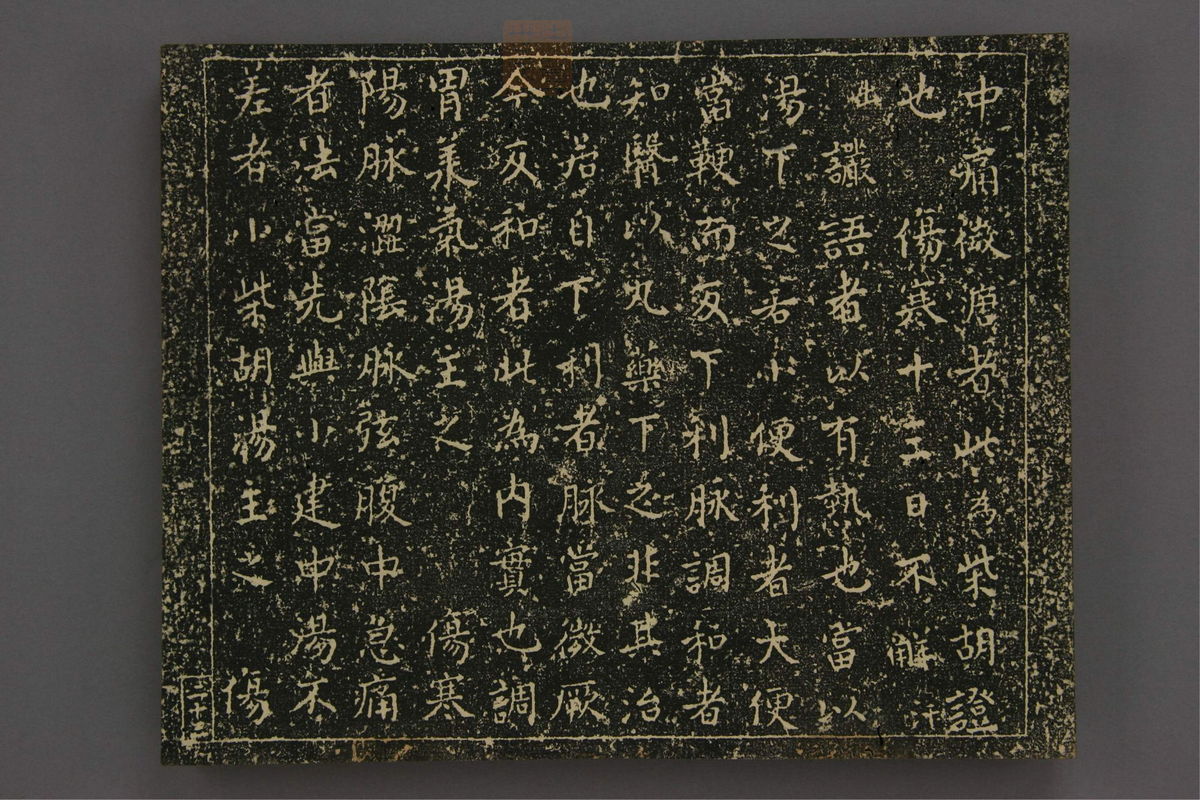 中痛微溏者此為柴胡證
也 傷寒十三日不解
讝語者以有熱也當以
湯下之若小便利者大便
當鞕而反下利脉調和者
知醫以丸藥下之非其治
也若自下利者脉當微厥
今反和者此為内實也調
胃承氣湯主之 傷寒
陽脉澀陰脉弦腹中急痛
者法當先與小建中湯不
差者小柴胡湯主之 傷
二十三